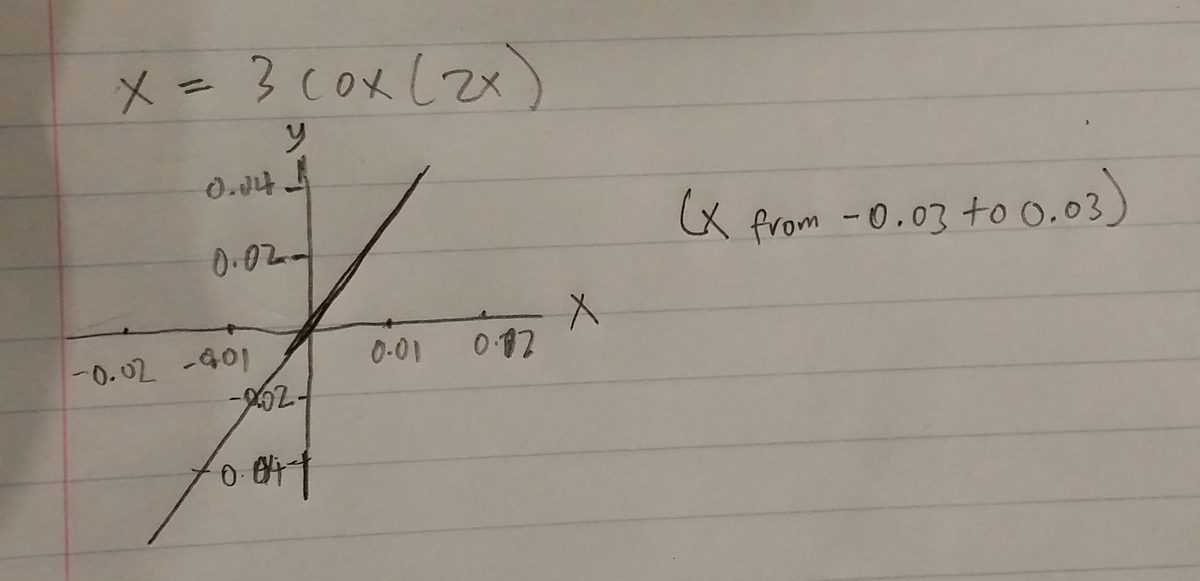 x = 3 cox(2x)
y
0.04
(x from -0.03 to 0.03)
0.02
x
-0.02 -0.01 0.01 0.02
-0.02
-0.04